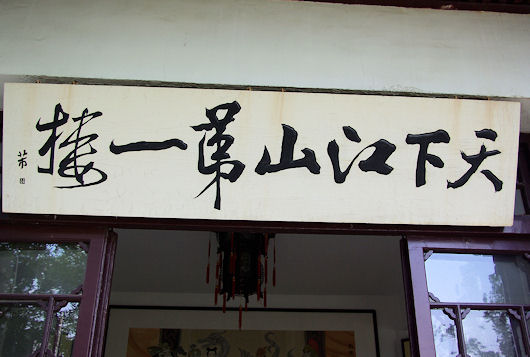 天下江山第一楼
芾